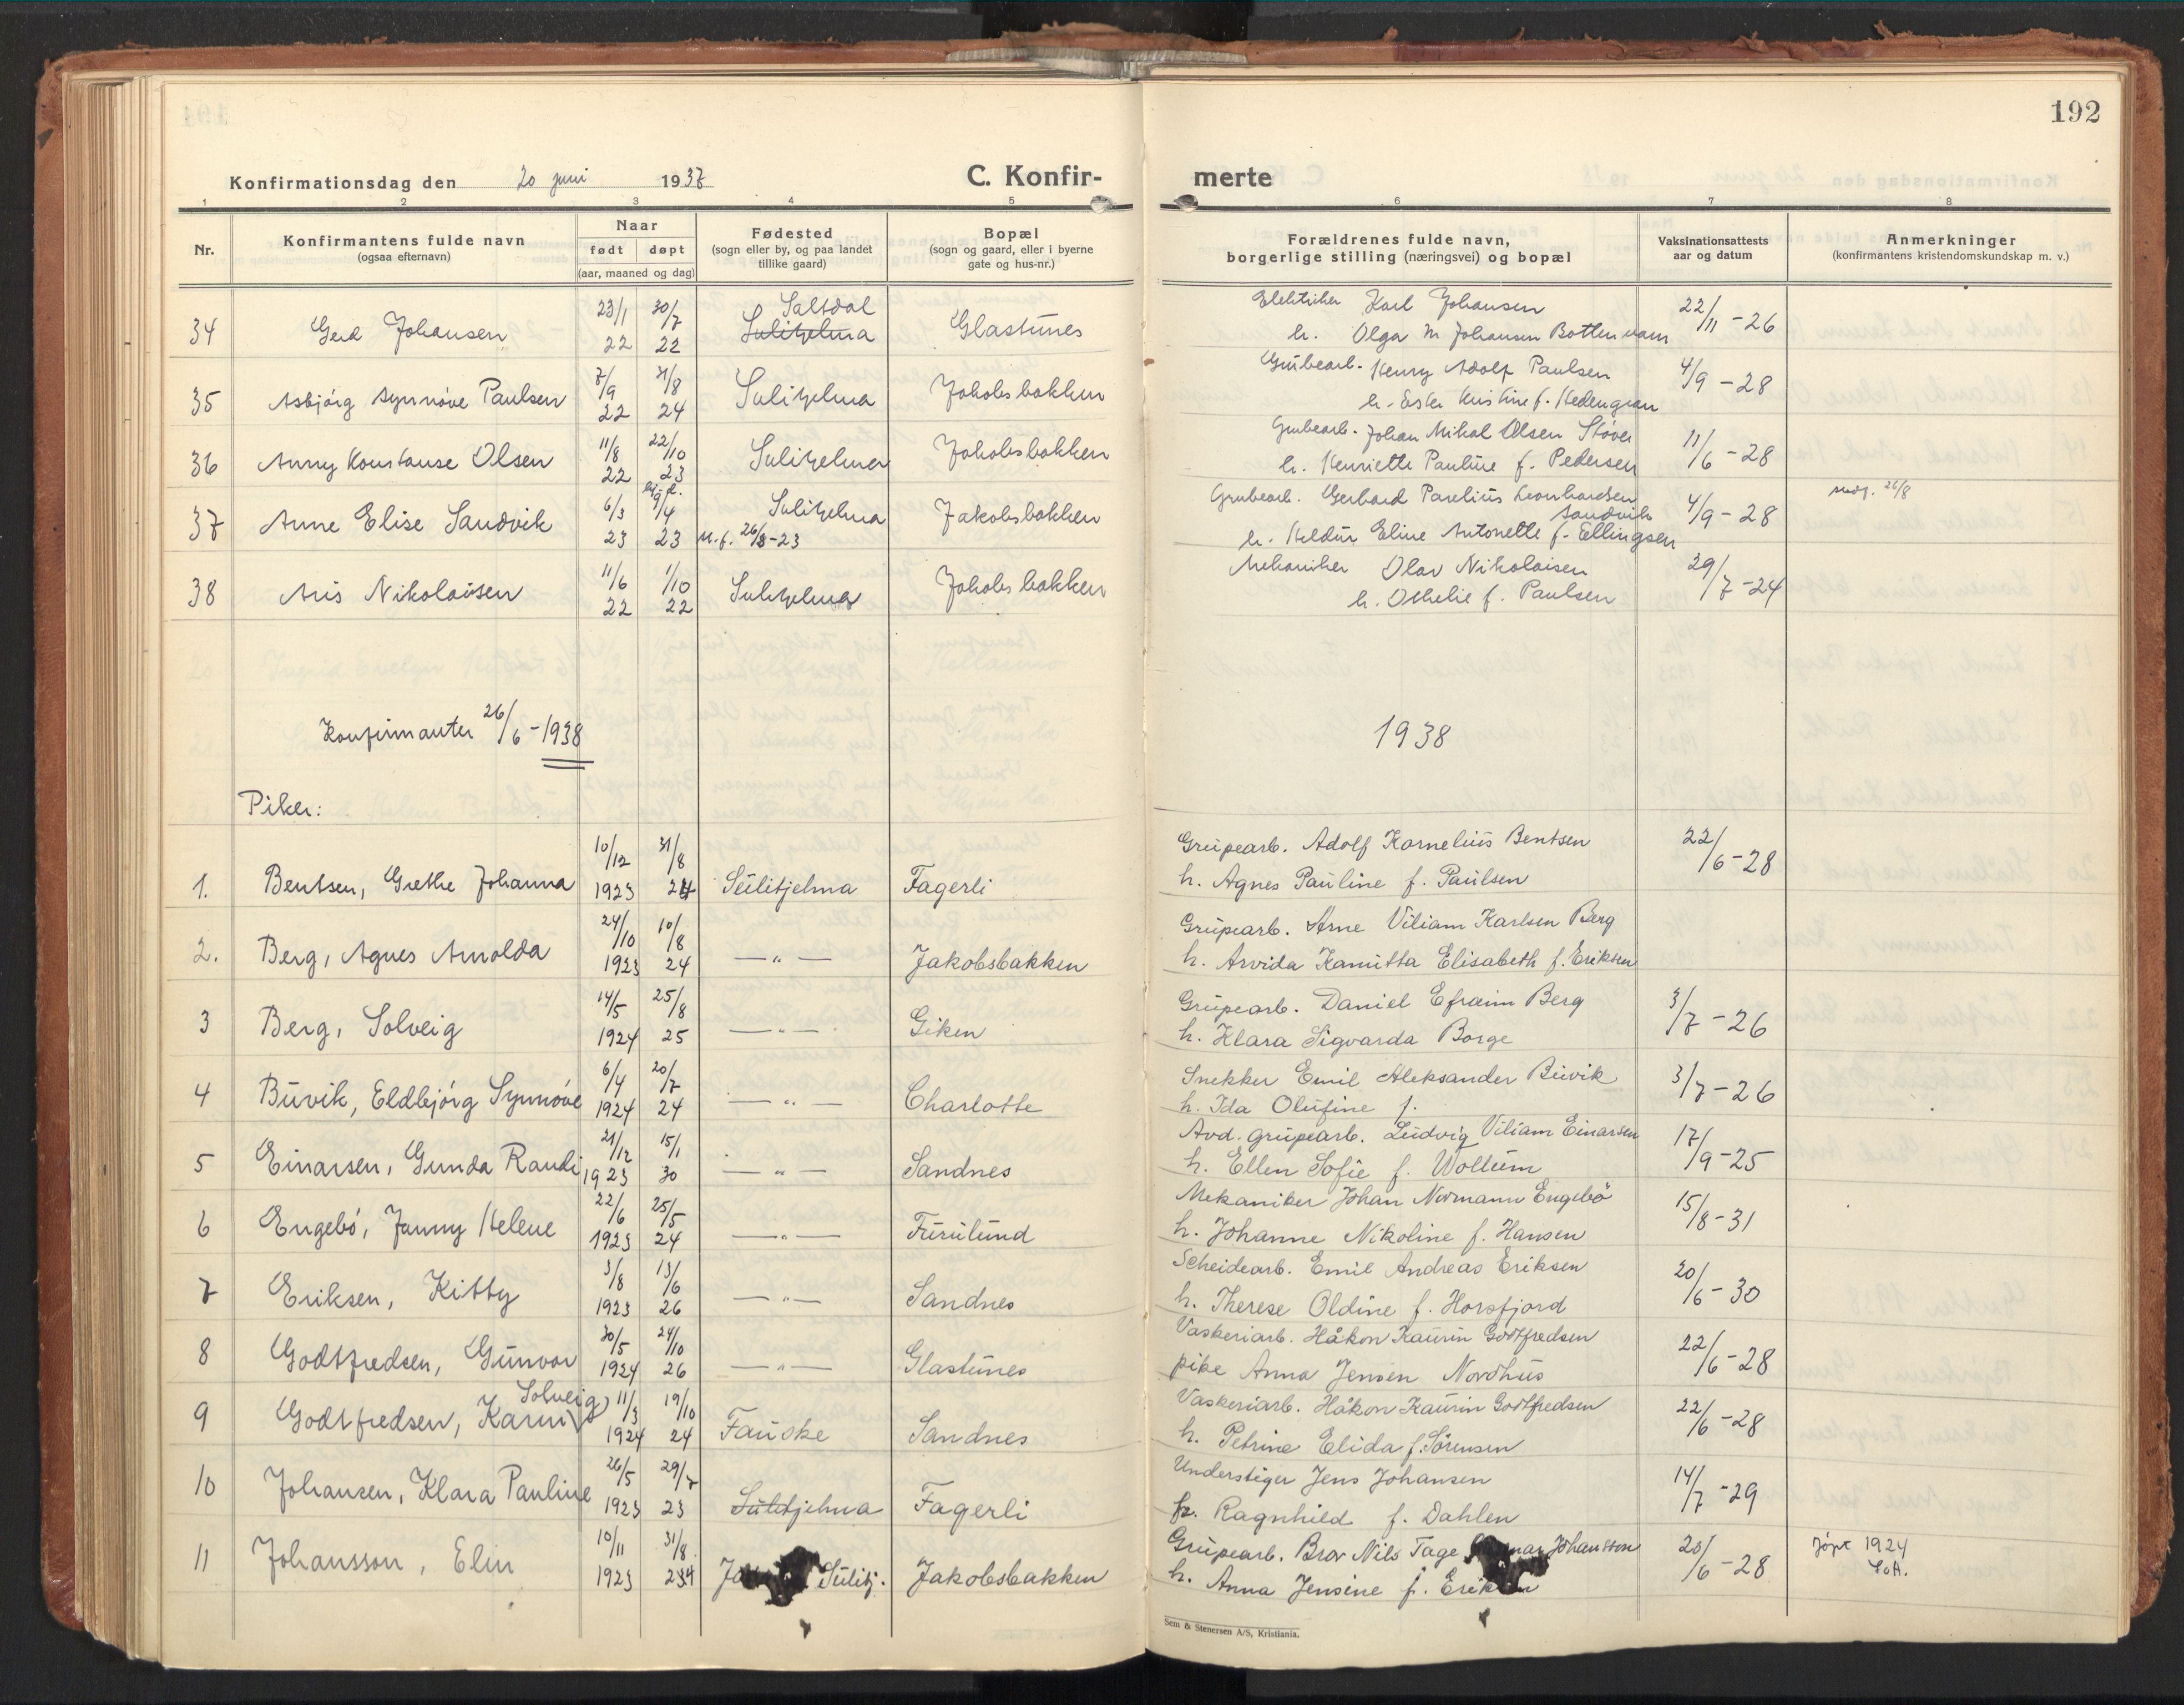 192
Konfirmationsdag den 20 juni 1937
C. Konfir-
merte
1 2 3 4 5 6 7 8
Nr.
Konfirmantens fulde navn
(ogsaa efternavn)
Naar
født døpt
(aar, maaned og dag)
Fødested
(sogn eller by, og paa landet
tillike gaard)
Bopæl
(sogn og gaard, eller i byerne
gate og hus-nr.)
Forældrenes fulde navn,
borgerlige stilling (næringsvei) og bopæl
Vaksinationsattests
aar og datum
Anmerkninger
(konfirmantens kristendomskundskap m. v.)
34 Gerd Johansen 23/1 22 30/7 22 Saltdal Sulitjelma Glastunes
Elektriker Karl Johansen
h. Olga M Johansen Bottenvann 22/11 - 26
35 Asbjörg Synnöve Paulsen 7/9 22 31/8 24 Sulitjelma Jakobsbakken
Grubearb. Henry Adolf Paulsen
h. Ester Kristine f. 4/9 - 28
36 Anny Konstanse Olsen 11/8 22 22/10 23 Sulitjelma Jakobsbakken
Grubearb. Johan Mikal Olsen Støver
h. Henriette Pauline f. Pedersen 11/6 - 28
37 Anne Elise Sandvik 6/3 23 9/4 23 Sulitjelma Jakobsbakken
26/8-23
Grubearb. Gerhard Parelius Leonhardsen
Sandvik
h. Heldur Eline Antonette f. Ellingsen 4/9 - 28
26/8
38 Aris Nikolaisen 11/6 22 1/10 22 Sulitjelma Jakobsbakken
Mekaniker Olav Nikolaisen
h. Othelie f. Paulsen 29/7 - 24
Konfirmanter 26/6 - 1938
1938
Piker:
1. Bentsen, Grethe Johanna 10/12 1923 31/8 24 Sulitjelma Fagerli
Grupearb. Adolf Kornelius Bentsen
h. Agnes Pauline f. Paulsen 22/6 - 28
2. Berg, Agnes Arnolda 24/10 1923 10/8 24 — " — Jakobsbakken
Grupearb. Arne Viliam Karlsen Berg
h. Arvida Kamitta Elisabeth f. Eriksen
3 Berg, Solveig 14/5 1924 25/8 25 — " — Giken
Grupearb. Daniel Efraim Berg
h. Klara Sigvarda Borge 3/7 - 26
4 Buvik, Eldbjörg Synnöve 6/4 1924 20/7 24 — " — Charlotte
Snekker Emil Aleksander Buvik
h. Ida Olufine f. 3/7 - 26
5 Einarsen, Gunda Randi 21/12 1923 15/1 30 — " — Sandnes
Avd. grupearb. Ludvig Viliam Einarsen
h. Ellen Sofie f. Wollum 17/9 - 25
6 Engebö, Janny Helene 22/6 1923 25/5 24 — " — Furulund
Mekaniker Johan Normann Engebö
h. Johanne Nikoline f. Hansen 15/8 - 31
7 Eriksen, Kitty 3/8 1923 13/6 26 — " — Sandnes
Scheidearb. Emil Andreas Eriksen
h. Therese Oldine f. Horsfjord 20/6 - 30
8 Godtfredsen, Gunvor 30/5 1924 24/10 26 — " — Glastunes
Vaskeriarb. Håkon Kaurin Godtfredsen
pike Anna Jensen Nordhus 22/6 - 28
9 Godtfredsen, Karin Solveig 11/3 1924 19/10 24 Fauske Sandnes
Vaskeriarb. Håkon Kaurin Godtfredsen
h. Petrine Elida f. Sörensen 22/6 - 28
10 Johansen, Klara Pauline 26/5 1923 29/7 23 Sulitjelma Fagerli
Understiger Jens Johansen
fr. Ragnhild f. Dahlen 14/7 - 29
11 Johansson, Elin 10/11 1923 31/8 24 Sulitj. Jakobsbakken
Grupearb. Bror Nils Tage Johansson
h. Anna Jensine f. Eriksen 20/6 - 28
1924
Sem & Stenersen A/S, Kristiania.